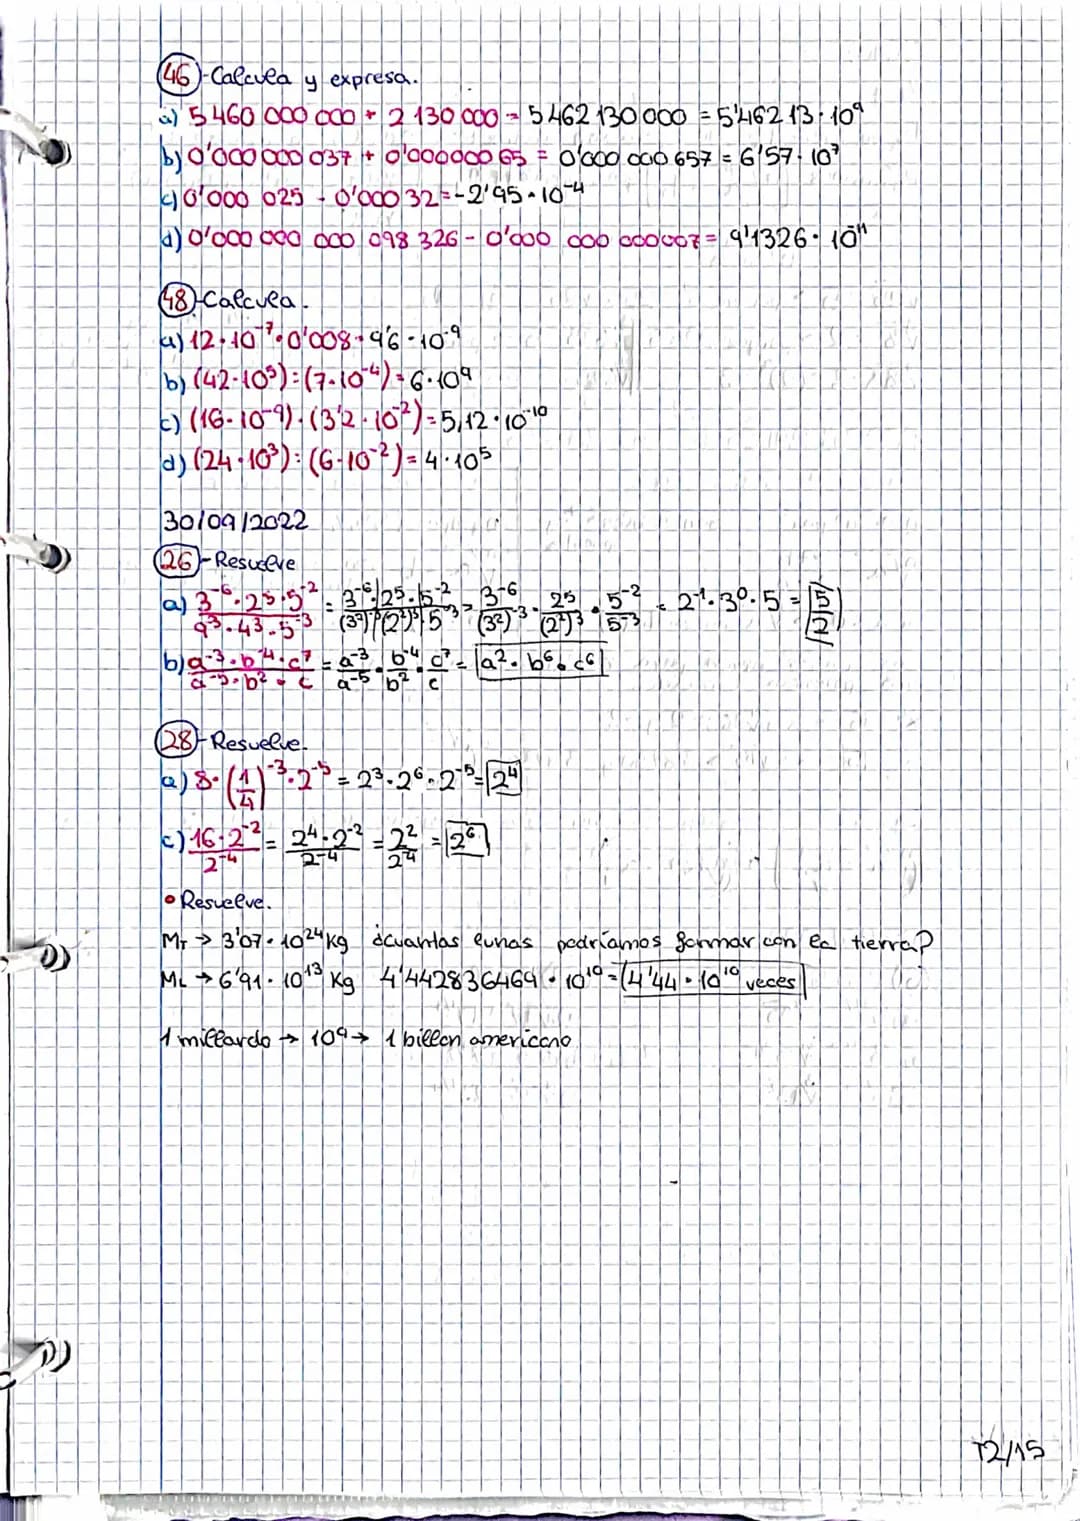 46-Calcula y expresa.
a) 5 460 000 000 + 2 130 000 = 5 462 130 000 = 5'46213·10⁹
b) 0'000 000 037 + 0'000000 65 = 0'000 000 657 = 6'57·10⁷
c) 0'000 025 - 0'000 32 = -2'95·10⁻⁴
d) 0'000 000 000 098 326 - 0'000 000 000007 = 9'1326·10⁻¹¹
48-Calcula.
a) 12·10⁻⁷·0'008 = 9'6·10⁻⁹
b) (42·10⁵):(7·10⁻⁴) = 6·10⁹
c) (16·10⁻⁹)·(3'2·10⁻²) = 5,12·10⁻¹⁰
d) (24·10³):(6·10⁻²) = 4·10⁵
30/09/2022
26-Resuelve
a) 3⁻⁶·2⁵·5⁻²/9³·4³·5⁻³ = 3⁻⁶·2⁵·5⁻²/(3²)⁻³·(2²)³·5⁻³ = 3⁻⁶/(3²)⁻³ · 2⁵/(2²)³ · 5⁻²/5⁻³ = 2⁻¹·3⁰·5 = 5/2
b) a⁻³·b⁻⁴·c⁷/a⁻⁵·b²·c = a⁻³/a⁻⁵ · b⁻⁴/b² · c⁷/c = a²·b⁶·c⁶
28-Resuelve.
a) 8·(1/4)⁻³·2⁻⁵ = 2³·2⁶·2⁻⁵ = 2⁴
c) 16·2⁻²/2⁻⁴ = 2⁴·2⁻²/2⁻⁴ = 2²/2⁻⁴ = 2⁶
• Resuelve.
M_T → 3'07·10²⁴ Kg ¿cuantas lunas podríamos formar con la tierra?
M_L → 6'91·10¹³ Kg 4'4428364 69·10¹⁰ = 4'44·10¹⁰ veces
1 millardo → 10⁹ → 1 billon americano
T2/15